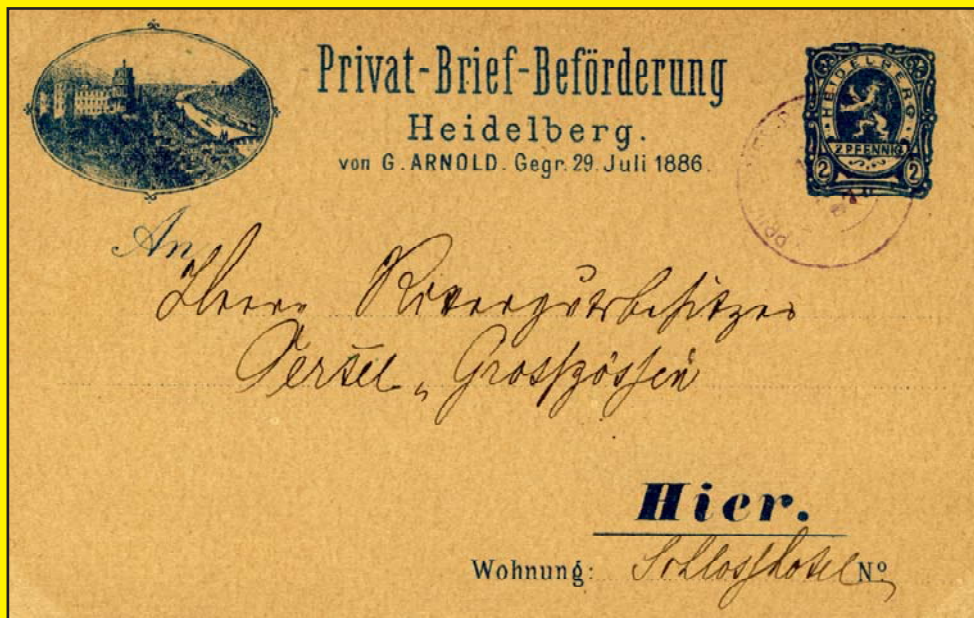 Privat-Brief-Beförderung
Heidelberg.
von G. ARNOLD. Gegr. 29. Juli 1886.
HEIDELBERG
2 PFENNIG
2 2
An
Herrn Rittergutsbesitzer
Grosszössen
Hier.
Wohnung: Schlosshotel Nº